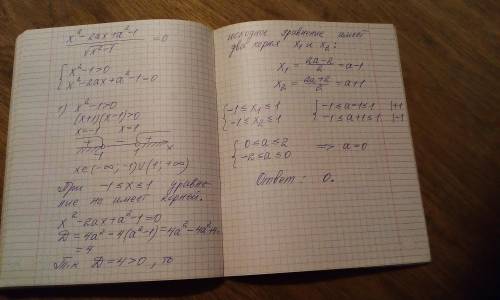 x²-2ax+a²-1
――――― =0
√x²-1
{ x²-1>0
{ x²-2ax+a²-1=0
1) x²-1>0
(x+1)(x-1)>0
x=-1 x=1
+ - +
-1 1 x
x∈(-∞;-1)∪(1;+∞)
При -1≤x≤1 уравне-
ние не имеет корней.
x²-2ax+a²-1=0
D=4a²-4(a²-1)=4a²-4a²+4=
=4
Т.к D=4>0, то
исходное уравнение имеет
два корня x₁ и x₂:
x₁ = (2a-2)/2 = a-1
x₂ = (2a+2)/2 = a+1
{ -1≤x₁≤1 { -1≤a-1≤1 |+1
{ -1≤x₂≤1 { -1≤a+1≤1 |-1
{ 0≤a≤2
{ -2≤a≤0 => a=0
Ответ: 0.